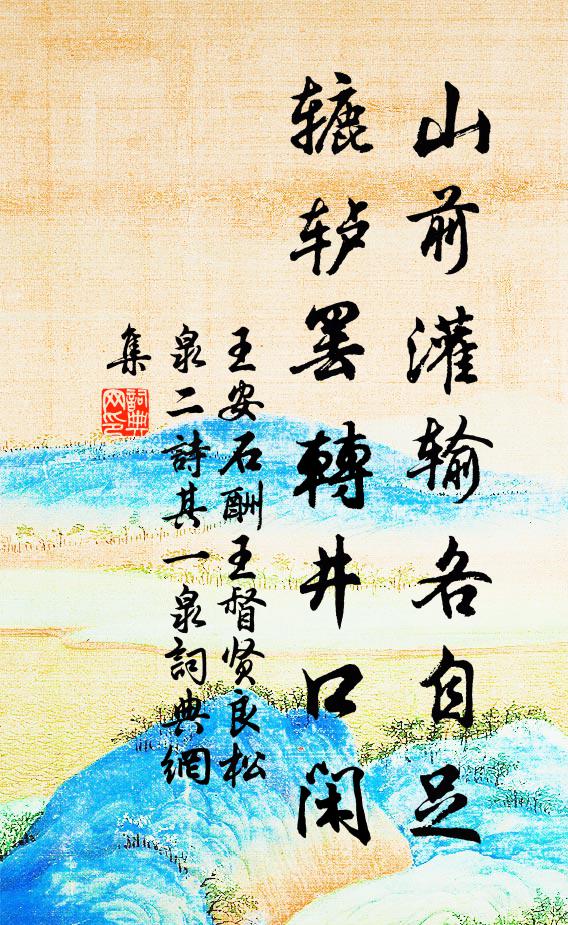 山前灌输各自足
辘轳罢轉井口闲
王安石酬王督贤良松
泉二詩其一泉詞典網
集
詞典
网印